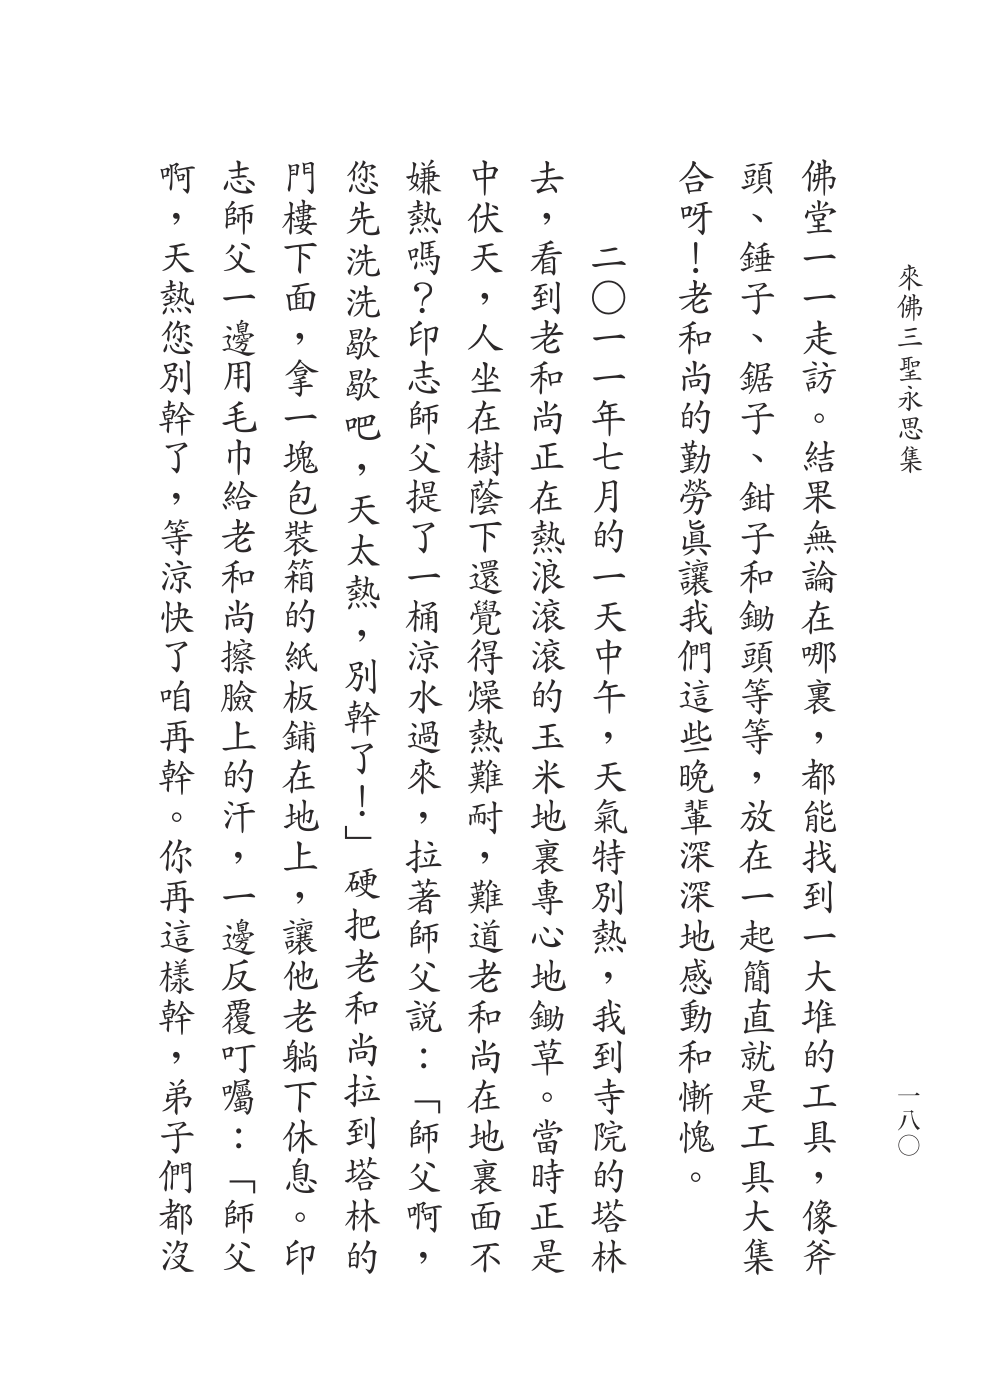 來佛三聖永思集
一八〇
佛堂一一走訪。結果無論在哪裏，都能找到一大堆的工具，像斧
頭、錘子、鋸子、鉗子和鋤頭等等，放在一起簡直就是工具大集
合呀！老和尚的勤勞眞讓我們這些晚輩深深地感動和慚愧。
二〇一一年七月的一天中午，天氣特別熱，我到寺院的塔林
去，看到老和尚正在熱浪滾滾的玉米地裏專心地鋤草。當時正是
中伏天，人坐在樹蔭下還覺得燥熱難耐，難道老和尚在地裏面不
嫌熱嗎？印志師父提了一桶涼水過來，拉著師父説：「師父啊，
您先洗洗歇歇吧，天太熱，別幹了！」硬把老和尚拉到塔林的
門樓下面，拿一塊包裝箱的紙板鋪在地上，讓他老躺下休息。印
志師父一邊用毛巾給老和尚擦臉上的汗，一邊反覆叮囑：「師父
啊，天熱您別幹了，等涼快了咱再幹。你再這樣幹，弟子們都沒